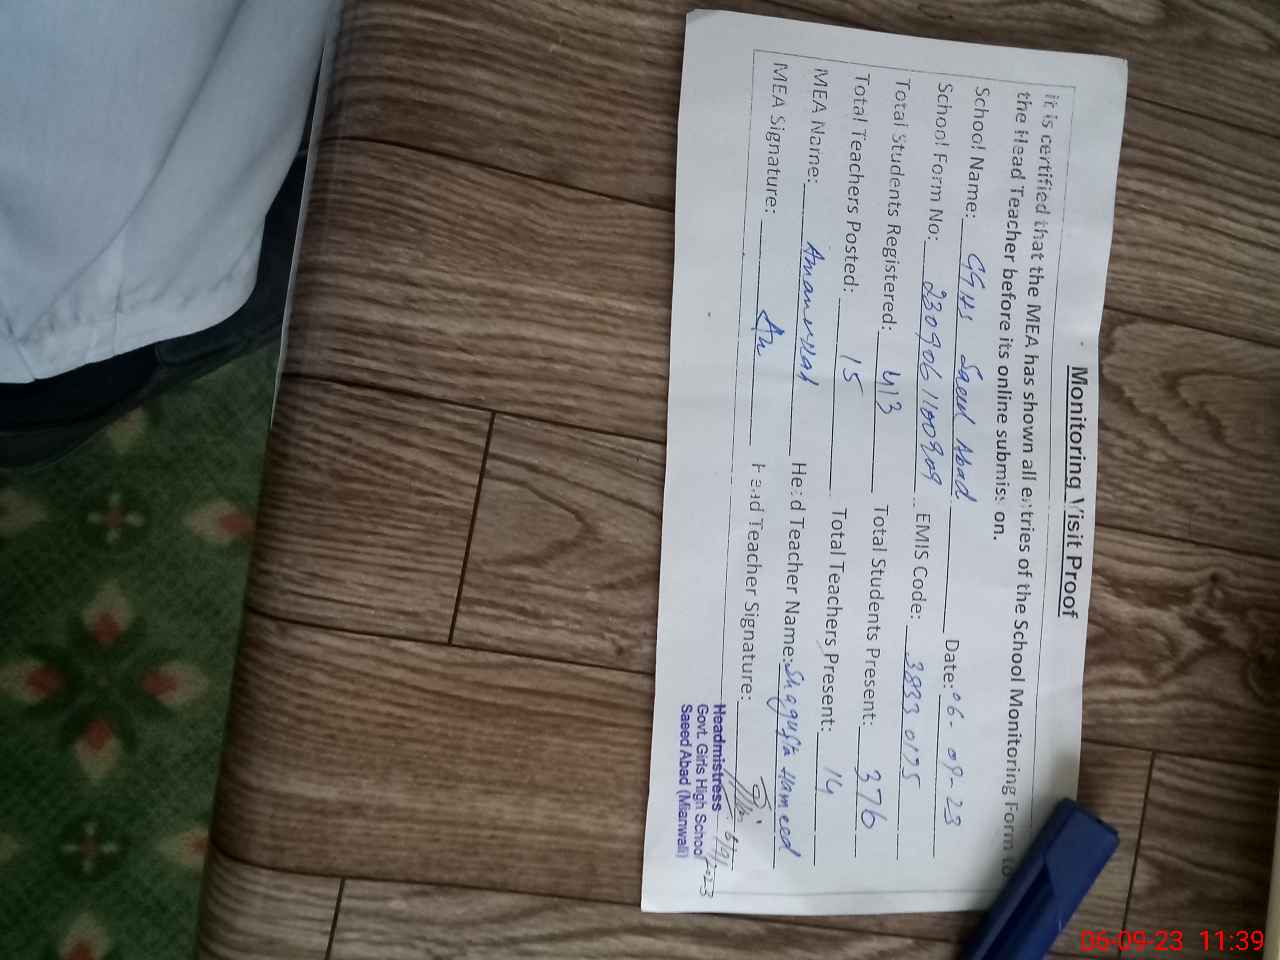 Monitoring Visit Proof
it is certified that the MEA has shown all entries of the School Monitoring Form to
the Head Teacher before its online submission.
School Name: GGHS Saeed Abad Date: 06-09-23
School Form No: 2309061100909 EMIS Code: 38330195
Total Students Registered: 413 Total Students Present: 376
Total Teachers Posted: 15 Total Teachers Present: 14
MEA Name: Amanullah Head Teacher Name: Shagufta Hameed
MEA Signature: Head Teacher Signature:
Headmistress
Govt. Girls High School
Saeed Abad (Mianwali)
06-09-23 11:39